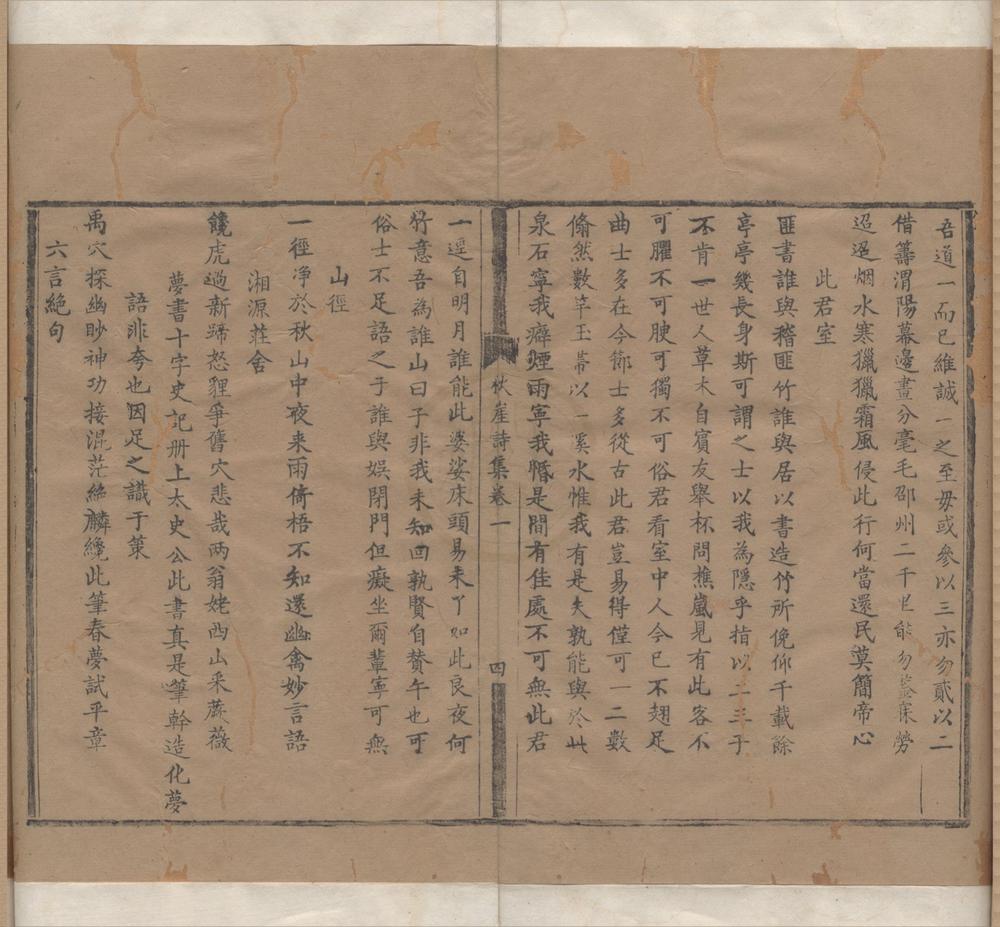 吾道一而已維誠一之至毋或參以三亦勿貳以二
借籌渭陽幕邊畫分毫毛邵州二千里能勿鰲寐勞
迢迢烟水寒獵獵霜風侵此行何當還民莫簡帝心
此君室
匪書誰與稽匪竹誰與居以書造竹所俛仰千載餘
亭亭幾長身斯可謂之士以我為隱乎指以二三子
不肯一世人草木自賓友舉杯問樵嵐見有此客不
可臞不可腴可獨不可俗君看室中人今已不翅足
曲士多在今鄉士多從古此君豈易得僅可一二數
翛然數竿玉帶以一奚水惟我有是夫孰能與於此
泉石寧我癖煙雨寧我惛是間有佳處不可無此君
秋崖詩集卷一
四
一逕自明月誰能此婆娑床頭易未了如此良夜何
竹意吾為誰山曰子非我未知回孰賢自賛午也可
俗士不足語之子誰與娱閉門但癡坐爾輩寧可無
山徑
一徑净於秋山中夜来雨倚梧不知還幽禽妙言語
湘源莊舍
饞虎過新蹄怒貍爭舊穴悲哉两翁姥西山采蕨薇
夢書十字史記册上太史公此書真是筆幹造化夢
語非夸也因足之識于策
禹穴探幽眇神功接混茫絲麟纔此筆春夢試平章
六言絶句